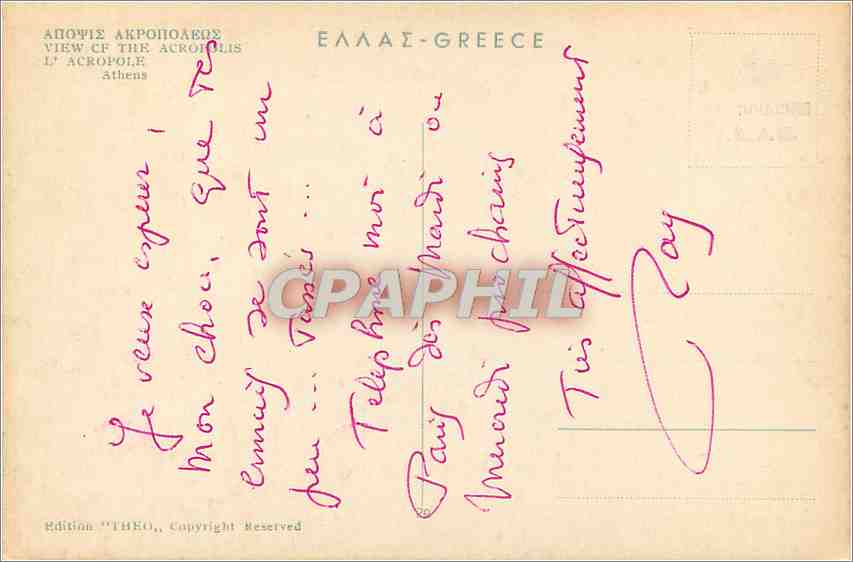 ΑΠΟΨΙΣ ΑΚΡΟΠΟΛΕΩΣ
VIEW CF THE ACROPOLIS
L' ACROPOLE
Athens
ΕΛΛΑΣ-GREECE
Je veux espérer,
mon chou, que tes
ennuis se sont un
peu... tassés...
Téléphone moi à
Paris dès Mardi ou
Mercredi prochain
Très affectueusement
Ray
CPARPHIL
29
Edition "THEO,, Copyright Reserved